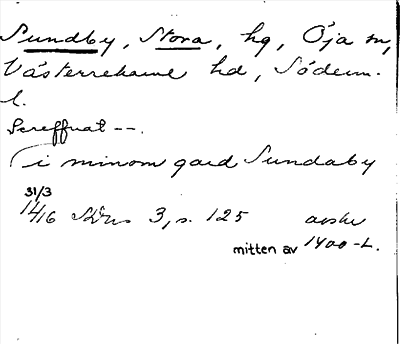 Sundby, Stora, hg, Öja sn,
Västerrekarne hd, Söderm.
l.
Screffuat --.
i minom gard Sundaby
31/3
1416 SDns 3, s. 125 avskr
mitten av 1400-t.